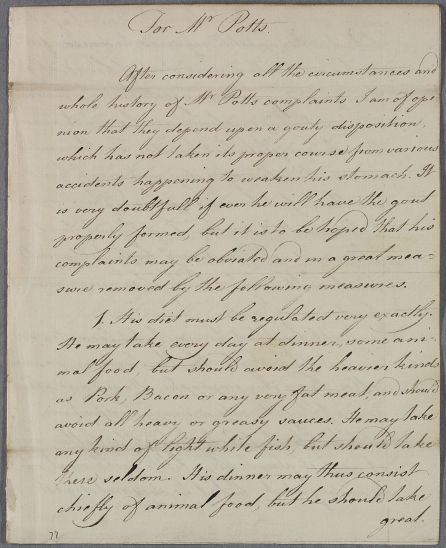 For Mr Potts.
After considering all the circumstances and
whole history of Mr Potts complaints I am of opi-
nion that they depend upon a gouty disposition,
which has not taken its proper course from various
accidents happening to weaken his stomach. It
is very doubtfull if ever he will have the gout
properly formed, but it is to be hoped that his
complaints may be obviated and in a great mea-
sure removed by the following measures.
1. His diet must be regulated very exactly.
He may take every day at dinner, some ani-
mal food, but should avoid the heavier kinds
as Pork, Bacon or any very fat meat, and should
avoid all heavy or greasy sauces. He may take
any kind of light white fish, but should take
seldom. His dinner may thus consist
chiefly of animal food, but he should take
great
77